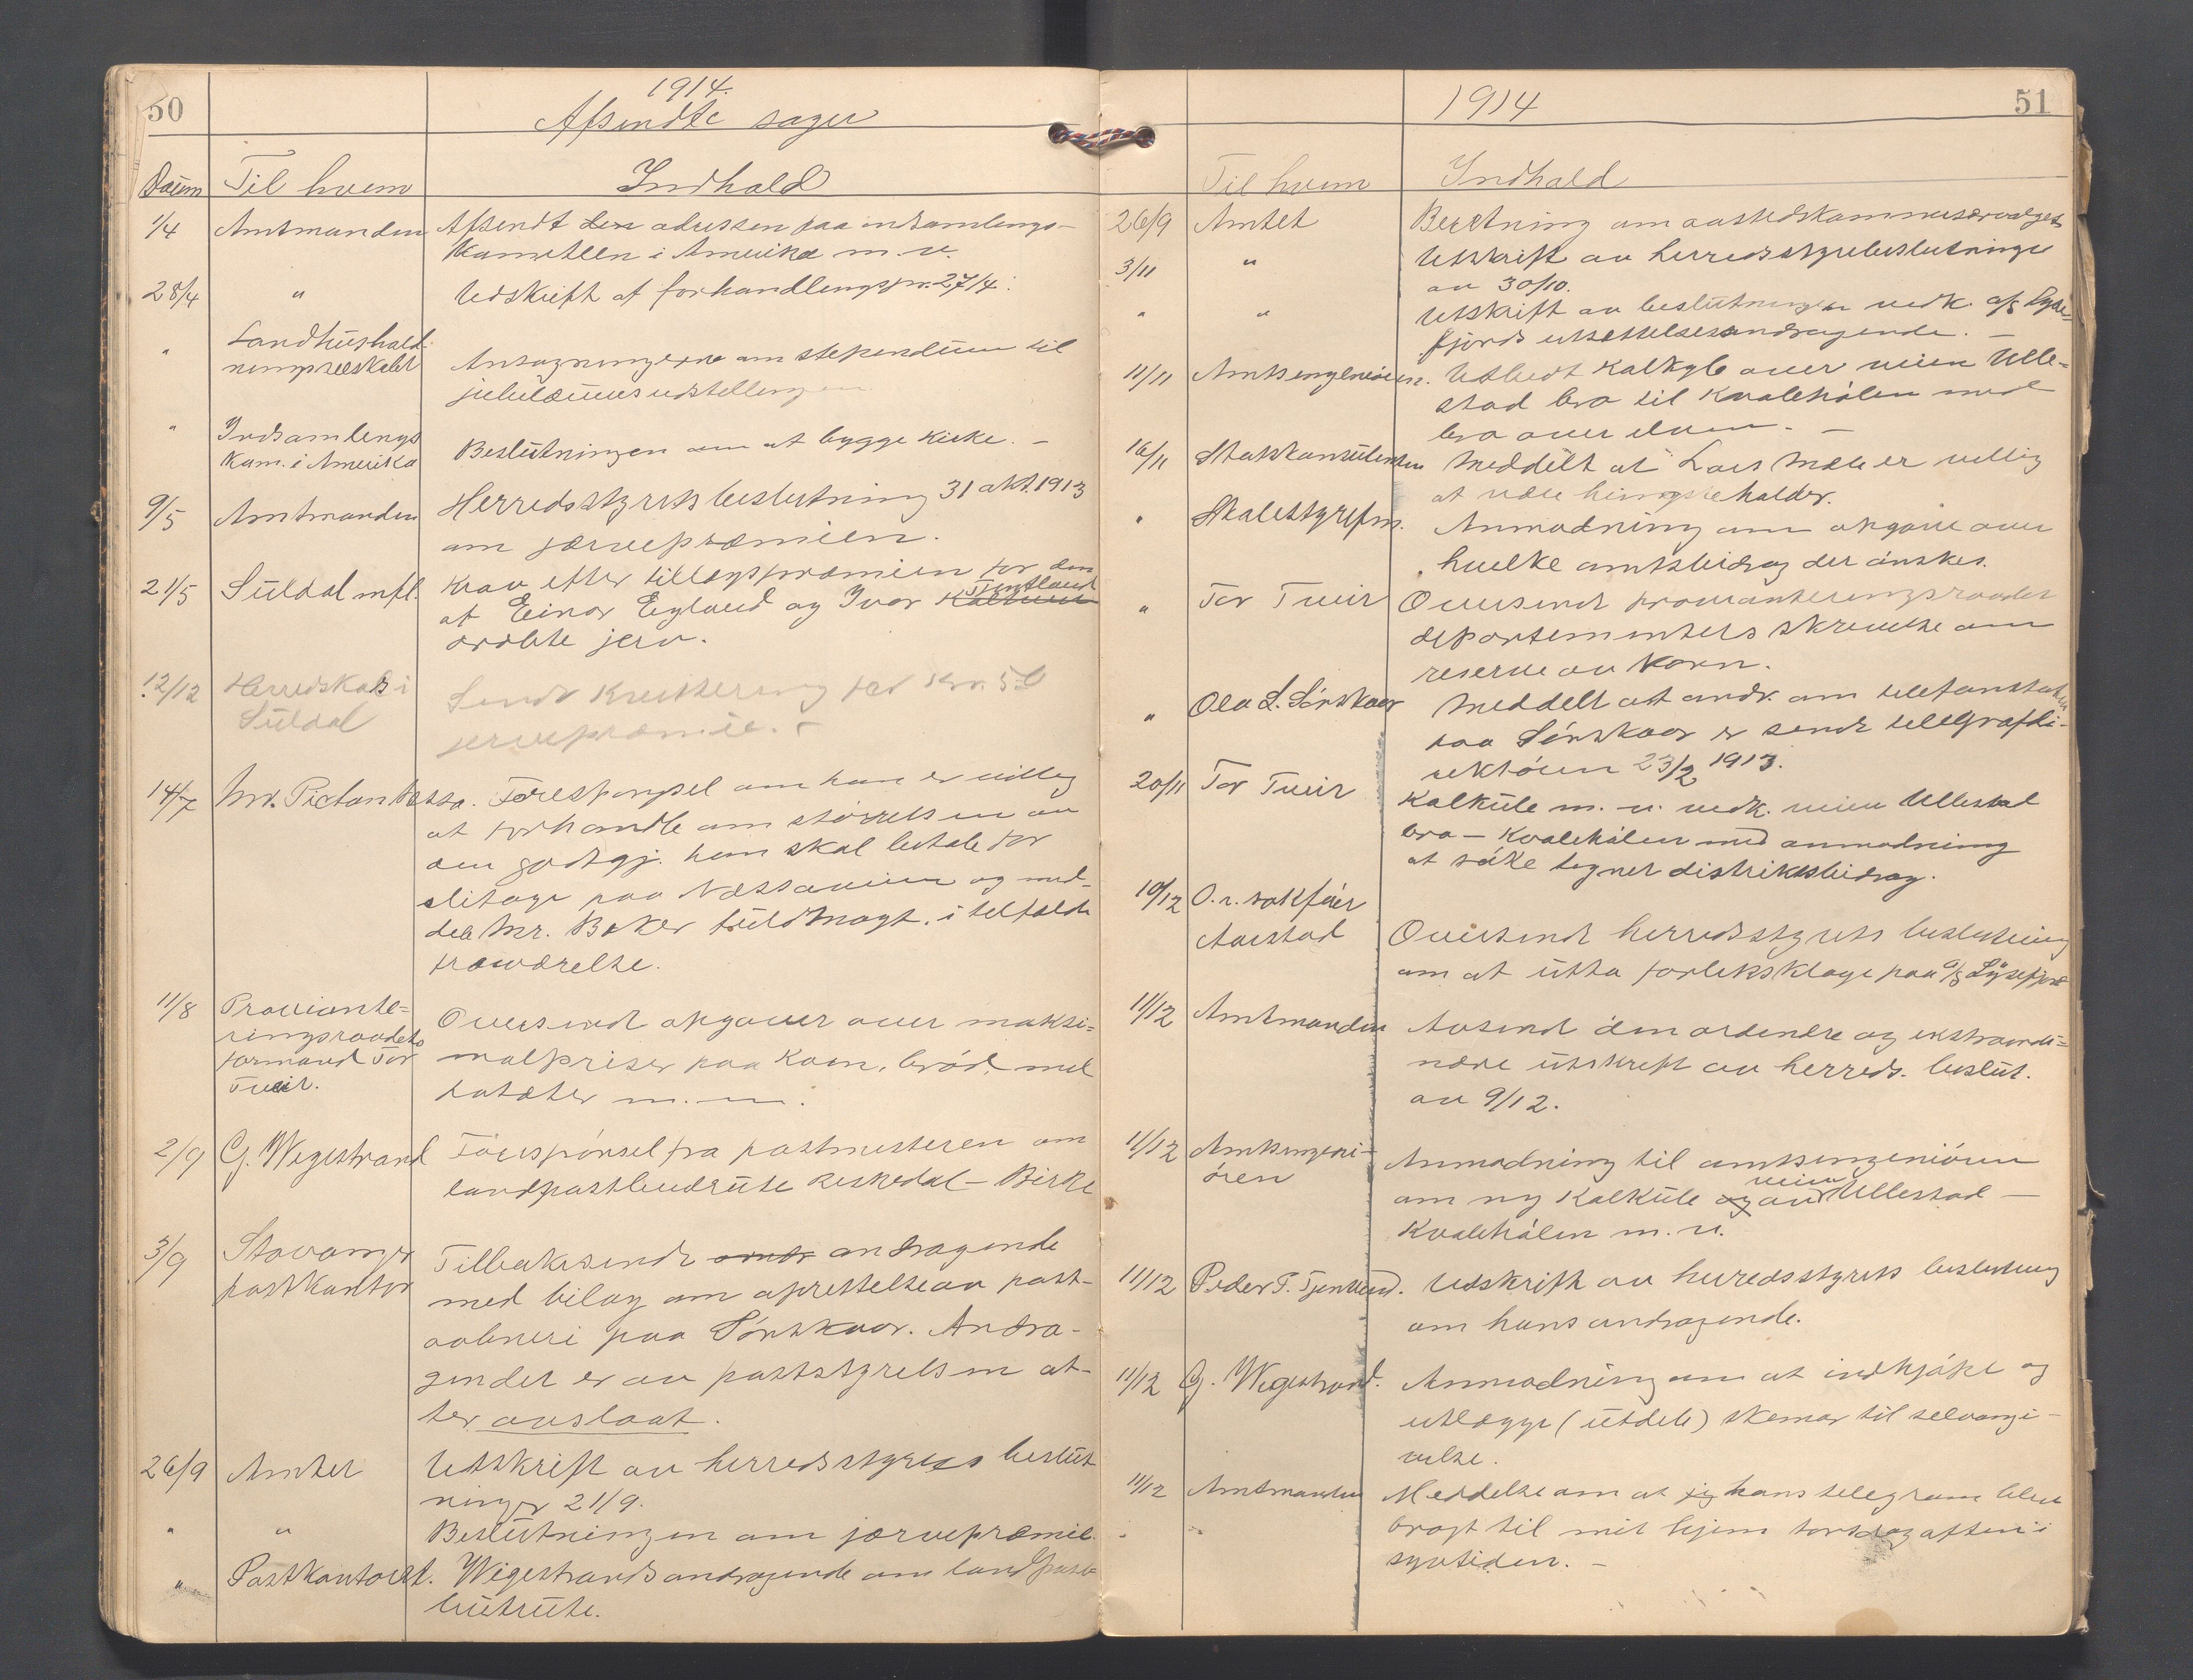 50
1914.
Afsendte sager
Datum Til hvem Indhald
1/4 Amtmanden Afsendt den adressen paa indsamlings-
kamiteen i Amerika m. v.
28/4 " Udskrift af forhandlingspr. 27/4.
" Landhushald-
ningsselskabet Ansøgningerne om stependium til
jubilæumsudstellingen
" Indsamlings
kam. i Amerika Beslutningen om at bygge kirke. -
9/5 Amtmanden Herredsstyrets beslutning 31 okt. 1913
om jærvepræmien.
21/5 Suldal mfl. Krav efter tillægspræmien for den
af Einar Egland og Ivar Tjentland
dræbte jerv.
12/12 Herredskas i
Suldal Sendt kvittering for kr. 50
jervepræmie. -
14/7 Mr. Picton Forespørsel om han er villig
at forhandle om størrelsen av
den godtgj. han skal betale for
slitage paa Næssaveien og med-
dele Mr. Baker fuldmagt i telfælde
fraværelse.
11/8 Proviante-
ringsraadets
formand Tor
Tveit. Oversendt opgaver over maksi-
malpriser paa korn, brød, mel
poteter m. m.
2/9 G. Wigestrand Förespörsel fra postmesteren om
landpostbudrute Reskedal - Birke
3/9 Stavanger
postkontor Tilbakesendt andr andragende
med bilag om oprettelse av post-
aabneri paa Sörskaar. Andra-
gendet er av poststyrelsen at-
ter avslaat.
26/9 Amtet Utskrift av herredsstyrets beslut-
ninger 21/9.
" " Beslutningen om jærvepræmie.
" Postkontoret. Wigestrands andragende om landpost-
budrute.
51
1914
Til hvem Indhald
26/9 Amtet Beretning om
3/11 " Utskrift av herredsstyrebeslutninger
av 30/10.
" " Utskrift av beslutningen vedk. a/s Lyse-
fjords utsettelsesandragende. -
11/11 Amtsingeniören. Utbedt kalkyle over veien Ulle-
stad bro til Kvalehölen med
bro over elven. -
16/11 Statskonsulenten Meddelt at Lars Mæle er villig
at være hingsteholder.
" Skolestyrefm. Anmodning om opgave over
hvilke amtsbidrag der önskes.
" Tor Tveit Oversendt provianteringsraadet
departementets skrivelse om
reserve av korn.
" Ola L. Sörskaar Meddelt at andr. om telefonstation
paa Sörskaar er sendt telegrafdi-
rektören 23/2 1913.
20/11 Tor Tveit Kalkule m. v. vedk. veien Ullestad
bro - Kvalehölen med anmodning
at söke tegnet distriktsbidrag.
10/12 O. r. sakförer
Aarstad Oversendt herredsstyrets beslutning
om at utta forliksklage paa a/s Lysefjord
11/12 Amtmanden Avsendt den ordentlre og ekstraordi-
nære utskrift av herreds. beslut.
av 9/12.
11/12 Amtsingeni-
ören Anmodning til amtsingeniören
om ny kalkule og av veien Ullestad -
Kvalehölen m. v.
11/12 Peder T. Tjentland. Udskrift av herredsstyrets beslutning
om hans andragende.
11/12 G. Wigestrand. Anmodning om at indkjöpe og
utlægge (utdele) skemar til selvangi-
velse.
11/12 Amtmanden Meddelse om at jeg hans telegram blev
" " bragt til mit hjem torsdag aften i
syvtiden. -